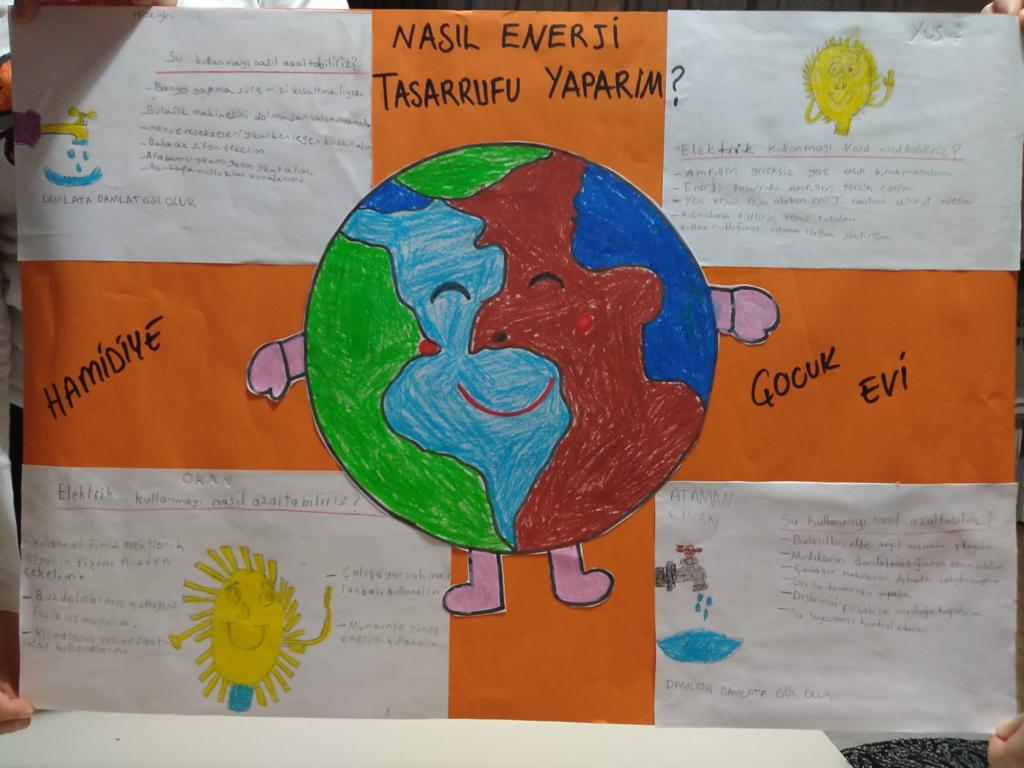 NASIL ENERJİ
TASARRUFU YAPARIM?
HAMİDİYE
ÇOCUK
EVİ
Hüseyin
Su kullanmayı nasıl azaltabiliriz?
- Banyo yapma süremizi kısaltmalıyız.
Bulaşık makinesini dolmadan
- meyve ve sebzeleri yıkarken leğen
- Daha az sifon çekelim
DAMLATA DAMLAT GÖL OLUR
YUSUF
Elektrik kullanmayı Nasıl azaltabiliriz?
- Ampulleri gereksiz yere açık bırakmayalım
- Enerji tasarruflu ampulleri tercih edelim
- Yeni beyaz eşya alırken ENERJİ sınıfına dikkat edelim
- Klimaların filtresini temiz tutalım
ORAN
Elektrik kullanmayı nasıl azaltabiliriz?
- kullanmadığımız elektronik
eşyanın fişini prizden
çekelim.
- Buzdolabının kapağını
fazla açmayalım.
- Klimaların yerine vanti-
latör kullanalım.
- Çalışa
lanbası kullanalım
- Mümkünse güneş
enerjisi kullanalım.
ATAMAN
CİVAN
Su kullanmayı nasıl azaltabiliriz?
- Bulaşıkları elde değil makinede yıkayalım
- Muslukların damlatmadığından emin olalım
- Çamaşır Makinesini dolmadan
- Gri su tasarrufu yapalım
- Dişlerimizi fırçalarken musluğu kapatalım
- Su sayacımızı kontrol edelim
DAMLATA DAMLATA GÖL OLUR